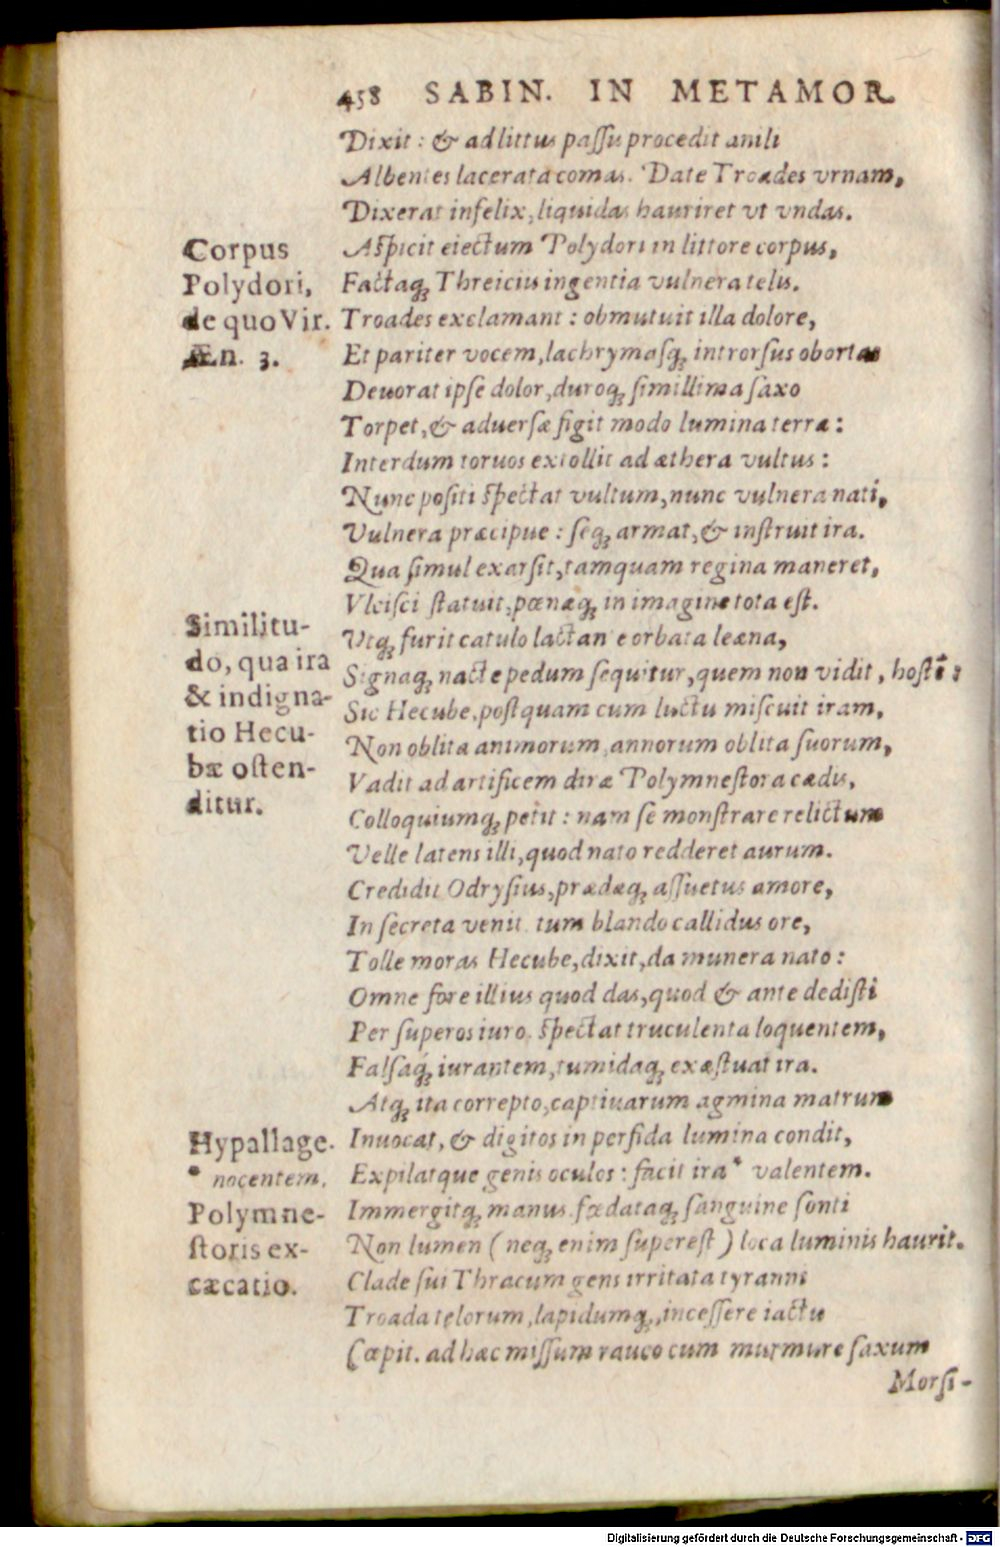 458 SABIN. IN METAMOR.
Dixit: & ad littus paſſu procedit anili
Albentes lacerata comas. Date Troades vrnam,
Dixerat infelix, liquidas hauriret vt vndas.
Corpus
Polydori,
de quo Vir.
Æn. 3.
Aſpicit eiectum Polydori in littore corpus,
Factaq; Threiciis ingentia vulnera telis.
Troades exclamant: obmutuit illa dolore,
Et pariter vocem, lachrymaſq; introrſus obortas
Deuorat ipſe dolor, duroq; ſimillima ſaxo
Torpet, & aduerſæ figit modo lumina terræ:
Interdum toruos extollit ad æthera vultus:
Nunc poſiti ſpectat vultum, nunc vulnera nati,
Vulnera præcipue: ſeq; armat, & inſtruit ira.
Qua ſimul exarſit, tamquam regina maneret,
Vlciſci ſtatuit, pœnæq; in imagine tota eſt.
Similitu-
do, qua ira
& indigna-
tio Hecu-
bæ oſten-
ditur.
Vtq; furit catulo lactante orbata leæna,
Signaq; nacte pedum ſequitur, quem non vidit, hoſtē:
Sic Hecube, poſtquam cum luctu miſcuit iram,
Non oblita animorum, annorum oblita ſuorum,
Vadit ad artificem diræ Polymneſtora cædis,
Colloquiumq; petit: nam ſe monſtrare relictum
Velle latens illi, quod nato redderet aurum.
Credidit Odryſius, prædæq; aſſuetus amore,
In ſecreta venit. tum blando callidus ore,
Tolle moras Hecube, dixit, da munera nato:
Omne fore illius quod das, quod & ante dediſti
Per ſuperos iuro. ſpectat truculenta loquentem,
Falſaq́; iurantem, tumidaq; exæſtuat ira.
Atq; ita correpto, captiuarum agmina matrum
Hypallage.
* nocentem.
Polymne-
ſtoris ex-
cæcatio.
Inuocat, & digitos in perfida lumina condit,
Expilatque genis oculos: facit ira * valentem.
Immergitq; manus. fœdataq; ſanguine ſonti
Non lumen (neq; enim ſupereſt) loca luminis haurit.
Clade ſui Thracum gens irritata tyranni
Troada telorum, lapidumq;, inceſſere iactu
Cœpit. ad hæc miſſum rauco cum murmure ſaxum
Morſi-
Digitalisierung gefördert durch die Deutsche Forschungsgemeinschaft - DFG